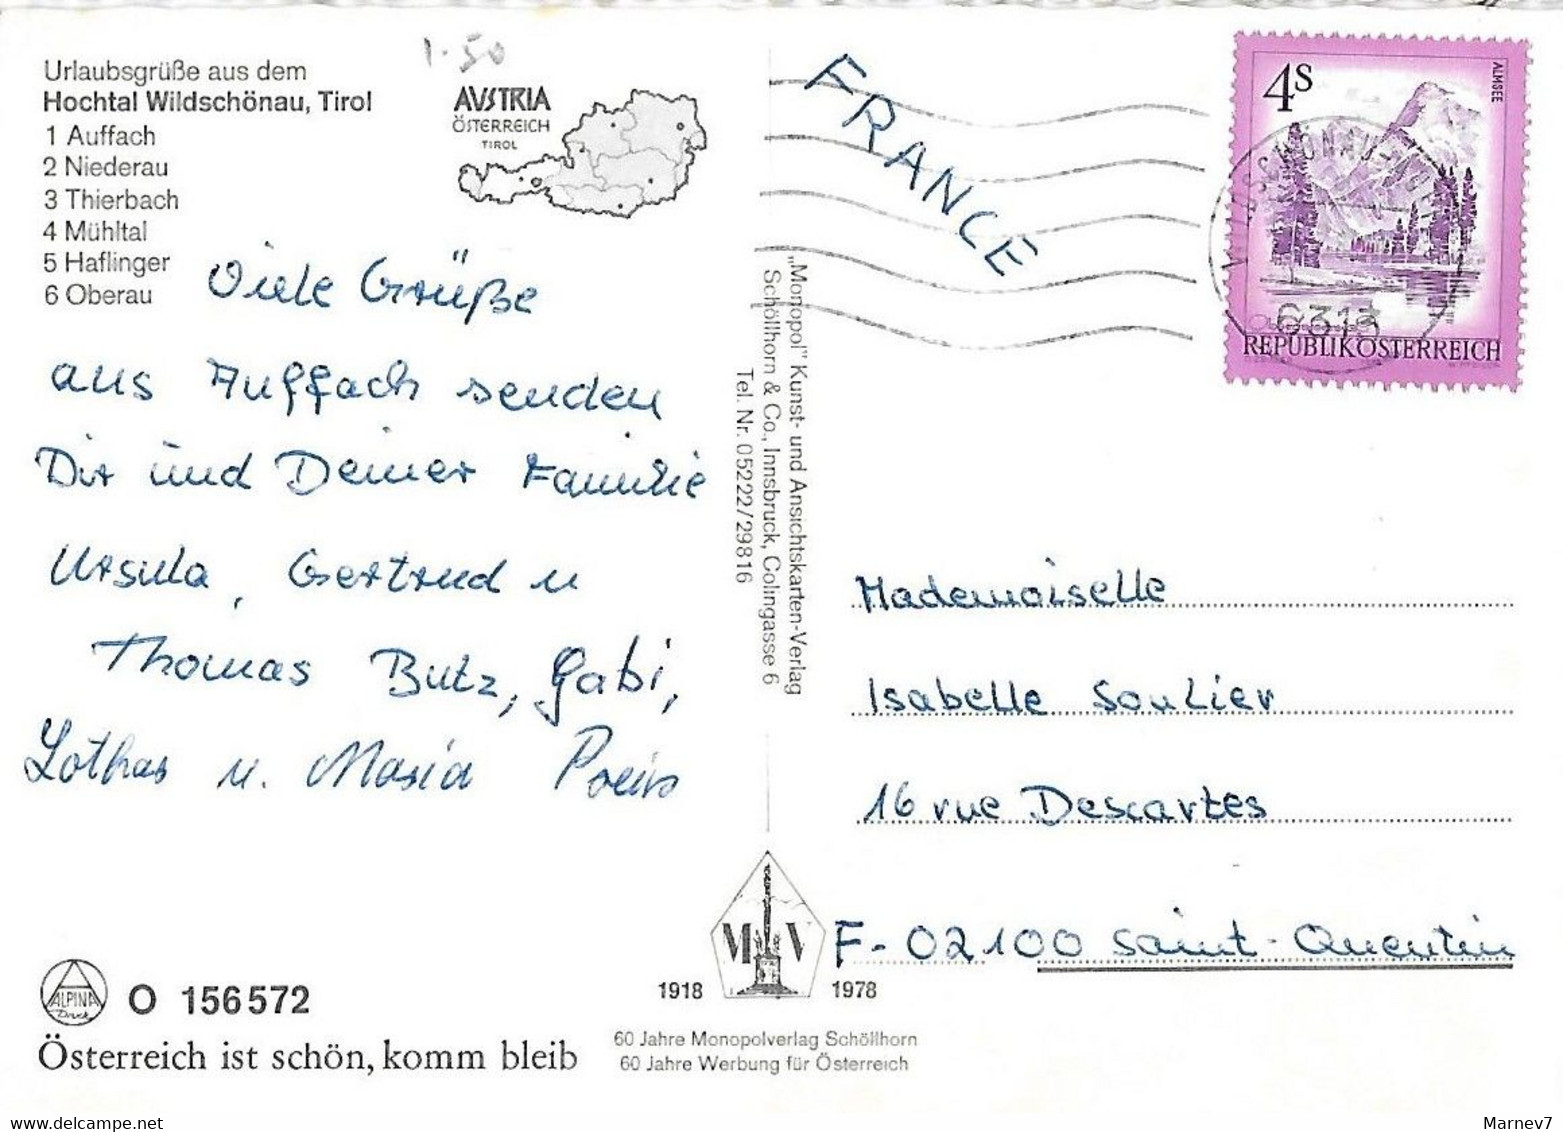 1.50
Urlaubsgrüße aus dem
Hochtal Wildschönau, Tirol
1 Auffach
2 Niederau
3 Thierbach
4 Mühltal
5 Haflinger
6 Oberau
AUSTRIA
ÖSTERREICH
TIROL
Viele Grüße
aus Auffach senden
Dir und Deiner Familie
Ursula, Gertrud u
Thomas Butz, Gabi,
Lothar u. Maria
O 156572
ALPINA
Druck
Österreich ist schön, komm bleib
„Monopol" Kunst- und Ansichtskarten-Verlag
Schöllhorn & Co., Innsbruck, Colingasse 6
Tel. Nr. 05222/29816
M V
1918 1978
60 Jahre Monopolverlag Schöllhorn
60 Jahre Werbung für Österreich
FRANCE
4S
ALMSEE
6313
REPUBLIK ÖSTERREICH
Mademoiselle
Isabelle Soulier
16 rue Descartes
F-02100 Saint-Quentin
Marnev7